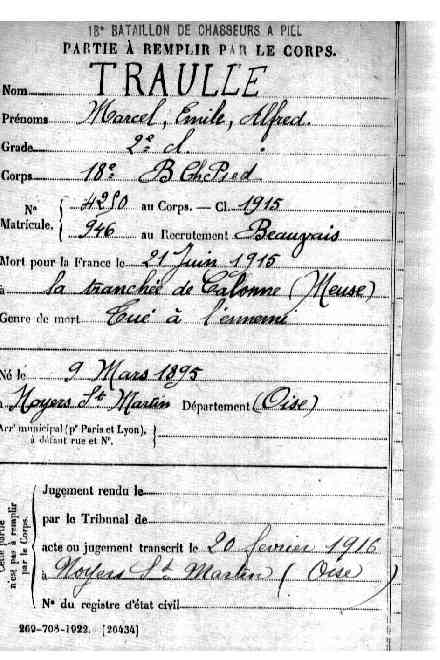 18e BATAILLON DE CHASSEURS A PIED
PARTIE À REMPLIR PAR LE CORPS.
Nom TRAULLE
Prénoms Marcel, Emile, Alfred.
Grade 2e cl.
Corps 18e B Ch Pied
N° Matricule. { 4250 au Corps. — Cl. 1915
946 au Recrutement Beauvais
Mort pour la France le 21 Juin 1915
à la tranchée de Calonne (Meuse)
Genre de mort Tué à l'ennemi
Né le 9 Mars 1895
à Noyers St Martin Département (Oise)
Arrt municipal (pr Paris et Lyon), à défaut rue et N°. }
Cette partie n'est pas à remplir par le Corps.
Jugement rendu le
par le Tribunal de
acte ou jugement transcrit le 20 fevrier 1916
à Noyers St Martin (Oise)
N° du registre d'état civil
269-708-1922. [26434]